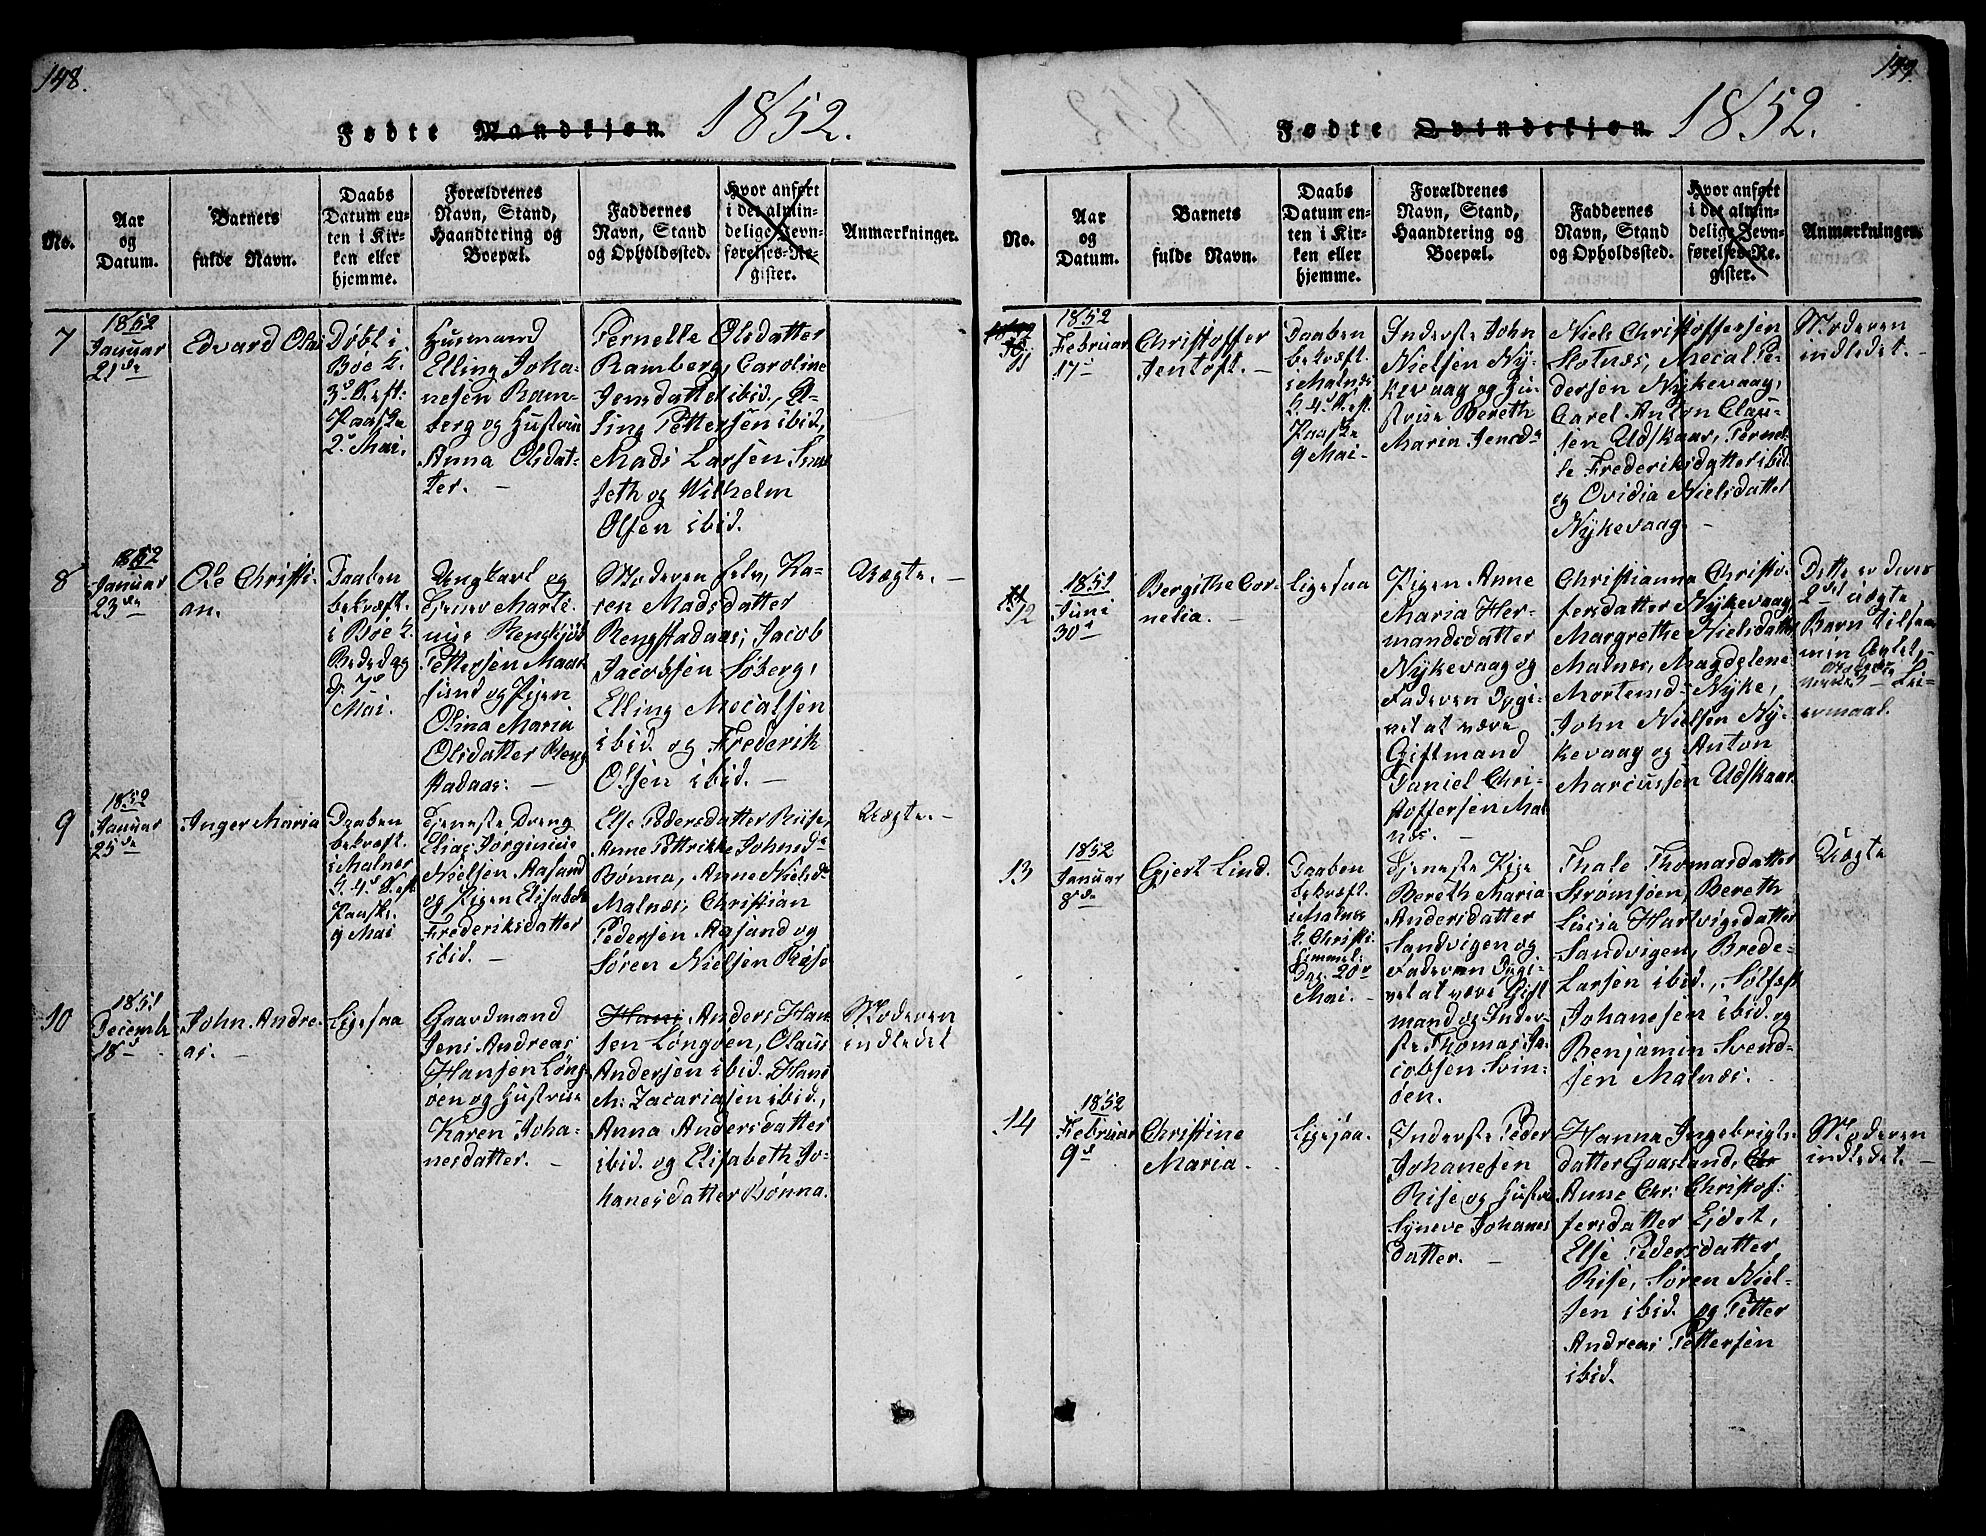 148.
Fødte Mandkjøn. 1852.
No.
Aar
og
Datum.
Barnets
fulde Navn.
Daabs
Datum en-
ten i Kir-
ken eller
hjemme.
Forældrenes
Navn, Stand,
Haandtering og
Boepæl.
Faddernes
Navn, Stand
og Opholdssted.
Hvor anført
i det almin-
delige Jevn-
førelses-Re-
gister.
Anmærkninger.
7
1852
Januar
21de
Edvard Olai
Døbt i
Böe K.
3d S. eft:
Paaske
2d Mai.
Husmand
Elling Joha-
nesen Ram-
berg og Hustrue
Anna Olsdat-
ter. -
Pernelle Olsdatter
Ramberg, Caroline
Jensdatter ibid,
Pettersen ibid,
Mads Larsen
seth og Wilhelm
Olsen ibid.
8
1852
Januar
23de
Ole Christi-
an.
Daaben
bekræft.
i Böe K.
Bededag
d. 7de
Mai.
Ungkarl og
Tjener Marti-
nus
Pettersen
sund og Pigen
Olina Maria
Olsdatter Reng
stadaas: -
Moderen selv, Ka-
ren Madsdatter
Rengstadaas, Jacob
Jacobsen Söberg,
Elling Mecalsen
ibid. og Frederik
Olsen ibid. -
Uægte. -
9
1852
Januar
25de
Inger Maria
Daaben
bekræft.
i Malnes
K. 4d S. eft
Paaske
9 Mai
Tjeneste Dreng
Elias Jørginius
Nielsen Aasand
og Pigen Elisabeth
Frederiksdatter
ibid. -
Else Pedersdatter Riise,
Anne Pettrikke Johnsdr
Bönna, Anne Nielsdr
Malnæs, Christian
Pedersen Aasand og
Sören Nielsen Riise
Uægte. -
10
1851
Decemb.
18d
John Andre-
as. -
Ligesaa
Gaardmand
Jens Andreas
Hansen Löng-
öen og Hustrue
Karen Joha-
nesdatter. -
Hans Anders Han-
sen Löngöen, Olaus
Andersen ibid. Hans
M. Zacariasen ibid.,
Anna Andersdatter
ibid. og Elisabeth Jo-
hanesdatter Bönna.
Moderen
indledet
149.
Fødte Qvindekjøn. 1852.
No.
Aar
og
Datum.
Barnets
fulde Navn.
Daabs
Datum en-
ten i Kir-
ken eller
hjemme.
Forældrenes
Navn, Stand,
Haandtering og
Boepæl.
Faddernes
Navn, Stand
og Opholdssted.
Hvor anført
i det almin-
delige Jevn-
førelses-Re-
gister.
Anmærkninger.
11
1852
Februar
17 -
Christoffer
Jentoft. -
Daaben
bekræft.
i Malnæs
K. 4d S. eft.
Paaske
9 Mai -
Inderste John
Nielsen Ny-
kevaag og Hu-
strue Bereth
Maria Jensdr
Niels Christoffersen
Skotnæs, Mecal Pe-
dersen Nykevaag,
Carel Anton Clau-
sen Udskaar, Pernel-
le Frederiksdatter ibid
og Ovidia Nielsdatter
Nykevaag. -
Moderen
indledet. -
12
1851
Juni
30d
Bergithe Cor-
nelia. -
Ligesaa
Pigen Anne
Maria Her-
mandsdatter
Nykevaag og
Faderen opgi-
vet at være
Giftmand
Daniel Chri-
stoffersen Mal-
næs. -
Christianna Christo-
fersdatter Nykevaag
Margrethe Nielsdatter
Malnæs, Magdelene
Mortensd- Nyke,
John Nielsen Ny-
kevaag og Anton
Marcussen Udskaar
Dette er deres
2det uægte
Barn tilsam
men
Lei-
ermaal.
13
1852
Januar
8de
Gjert Lind.
Daaben
bekræft.
i Malnæs
K. Christi
Himmel:
Dag. 20d
Mai. -
Tjeneste Pige
Bereth Maria
Andersdatter
Sandvigen og
Faderen opgi-
vet at være Gift
mand og Inder-
ste Thomas Ja-
cobsen Svin-
öen.
Thale Thomasdatter
Strömsöen, Bereth
Lucia Hartvigsdatter
Sandvigen, Brede-
Larsen ibid., Solfast
Johanesen ibid. og
Benjamin Svend-
sen Malnæs.
Uægte
14
1852
Februar
9d
Christine
Maria. -
Ligesaa.
Inderste Peder
Johanesen
Rise og Hustrue
Synneve Johanes
datter. -
Hanna Ingebrigts-
datter Gaasland, Chr
Anne Chr: Christof-
fersdatter Eidet,
Else Pedersdatter
Rise, Sören Niel-
sen ibid. og Petter
Andreas Pettersen
ibid.
Moderen
indledet. -